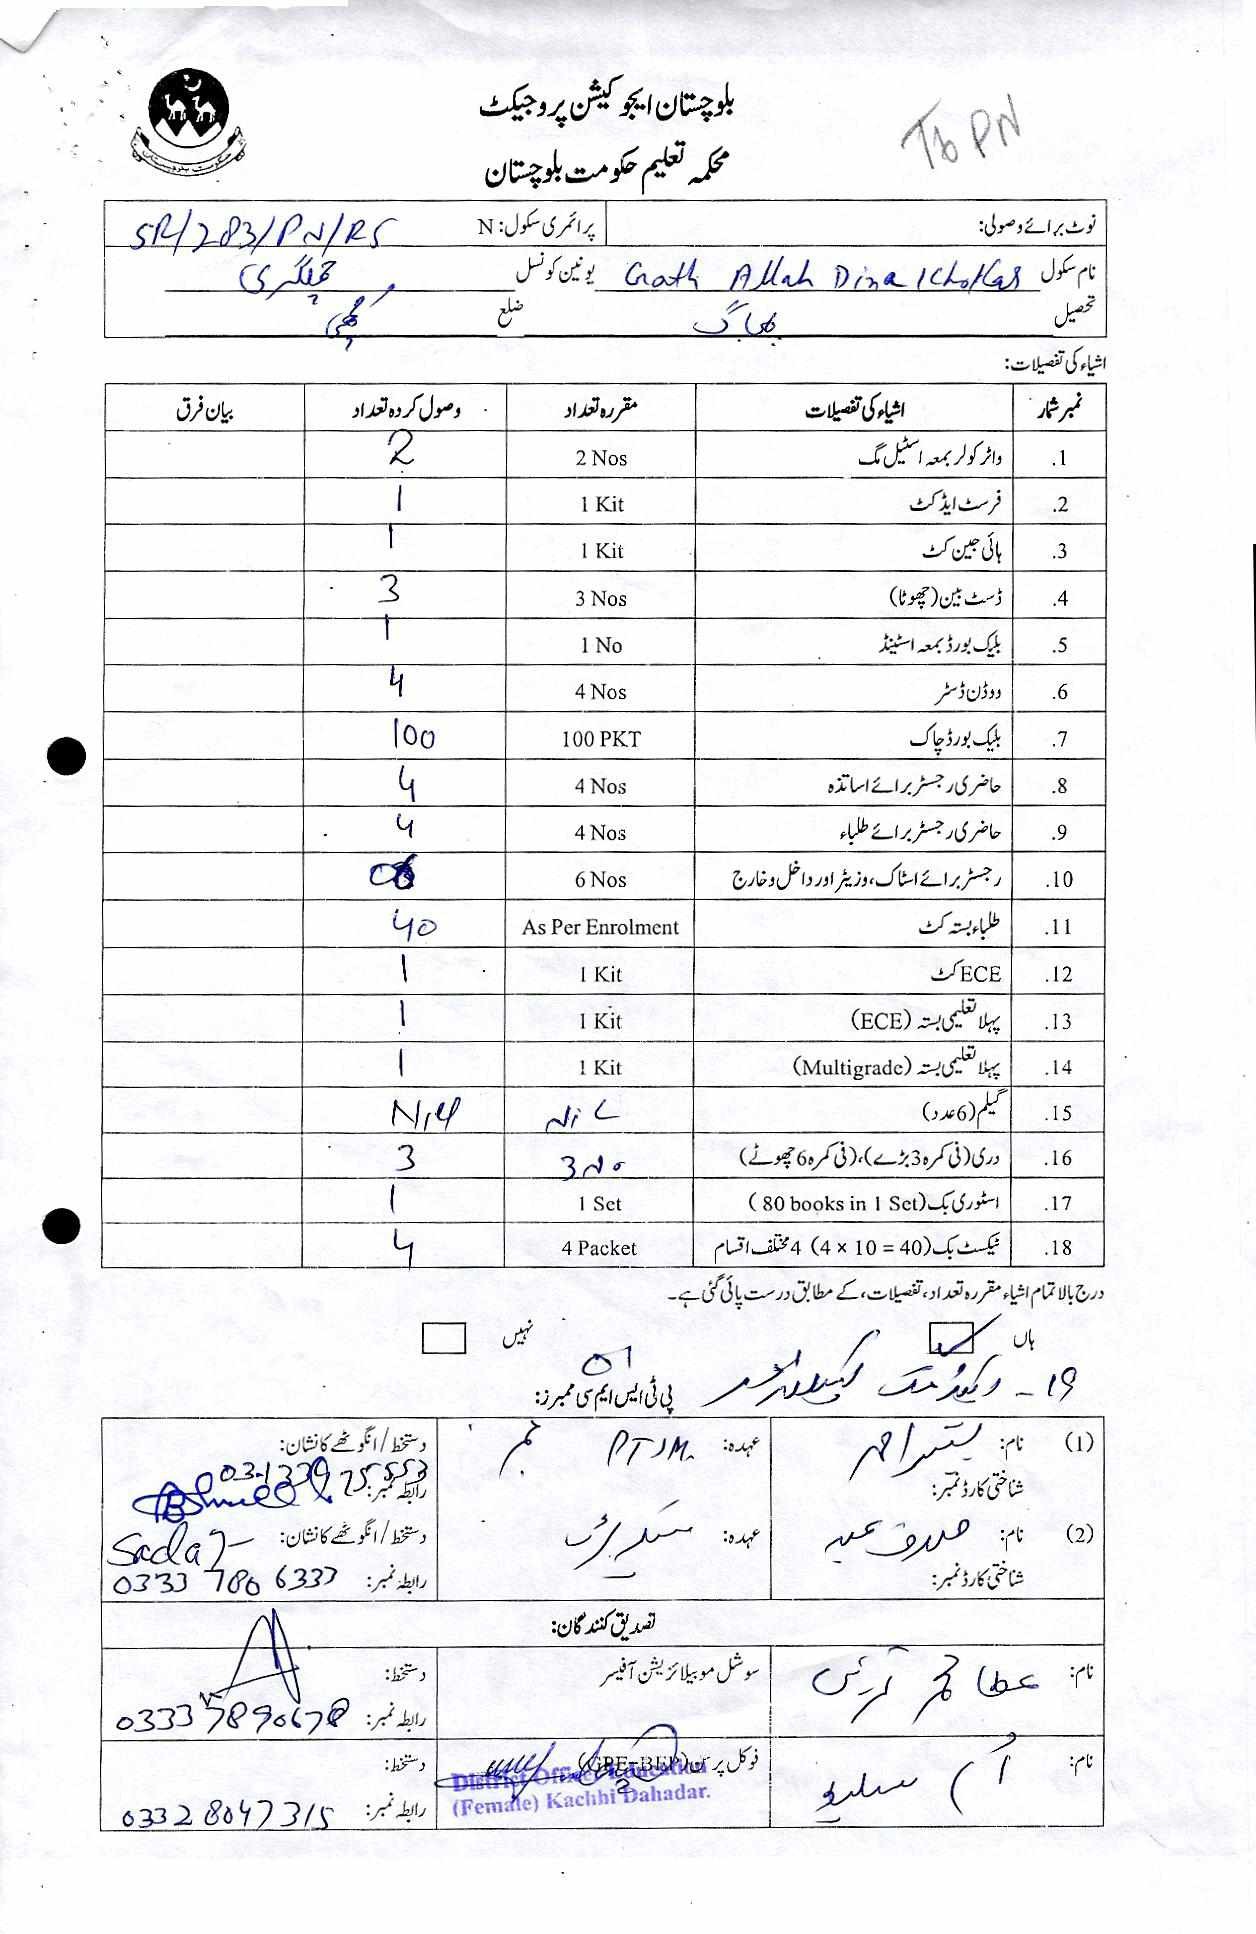 بلوچستان ایجوکیشن پروجیکٹ
محکمہ تعلیم حکومت بلوچستان
To PN
حکومت بلوچستان
نوٹ برائے وصولی: پرائمری سکول: N SR/283/PN/RS
نام سکول Goth Allah Dina Khokar یونین کونسل
تحصیل بھاگ ضلع کچھی
اشیاء کی تفصیلات:
نمبر شمار اشیاء کی تفصیلات مقررہ تعداد وصول کردہ تعداد بیان فرق
1. واٹر کولر بمعہ اسٹیل مگ 2 Nos 2
2. فرسٹ ایڈ کٹ 1 Kit 1
3. ہائی جین کٹ 1 Kit 1
4. ڈسٹ بین (چھوٹا) 3 Nos 3
5. بلیک بورڈ بمعہ اسٹینڈ 1 No 1
6. ووڈن ڈسٹر 4 Nos 4
7. بلیک بورڈ چاک 100 PKT 100
8. حاضری رجسٹر برائے اساتذہ 4 Nos 4
9. حاضری رجسٹر برائے طلباء 4 Nos 4
10. رجسٹر برائے اسٹاک، وزیٹر اور داخل و خارج 6 Nos 06
11. طلباء بستہ کٹ As Per Enrolment 40
12. ECE کٹ 1 Kit 1
13. پہلا تعلیمی بستہ (ECE) 1 Kit 1
14. پہلا تعلیمی بستہ (Multigrade) 1 Kit 1
15. گیلم (6 عدد) NiL Nill
16. دری (فی کمرہ 3 بڑے)، (فی کمرہ 6 چھوٹے) 3 No 3
17. اسٹوری بک (80 books in 1 Set) 1 Set 1
18. ٹیکسٹ بک (4 × 10 = 40) 4 مختلف اقسام 4 Packet 4
درج بالا تمام اشیاء مقررہ تعداد، تفصیلات، کے مطابق درست پائی گئی ہے۔
ہاں نہیں
19- 01
پی ٹی ایس ایم سی ممبرز:
(1) نام: بشیر احمد عہدہ: PTSM دستخط / انگوٹھے کا نشان:
شناختی کارڈ نمبر: رابطہ نمبر:
(2) نام: عہدہ: دستخط / انگوٹھے کا نشان:
شناختی کارڈ نمبر: رابطہ نمبر: 0333 780 6333
تصدیق کنندگان:
نام: عطا محمد سوشل موبیلائزیشن آفیسر دستخط:
رابطہ نمبر: 0333 7890678
نام: ام سلیم فوکل پرسن (GPE-BEP) دستخط:
District Officer Education
(Female) Kachhi Dahadar.
رابطہ نمبر: 0332 8047315